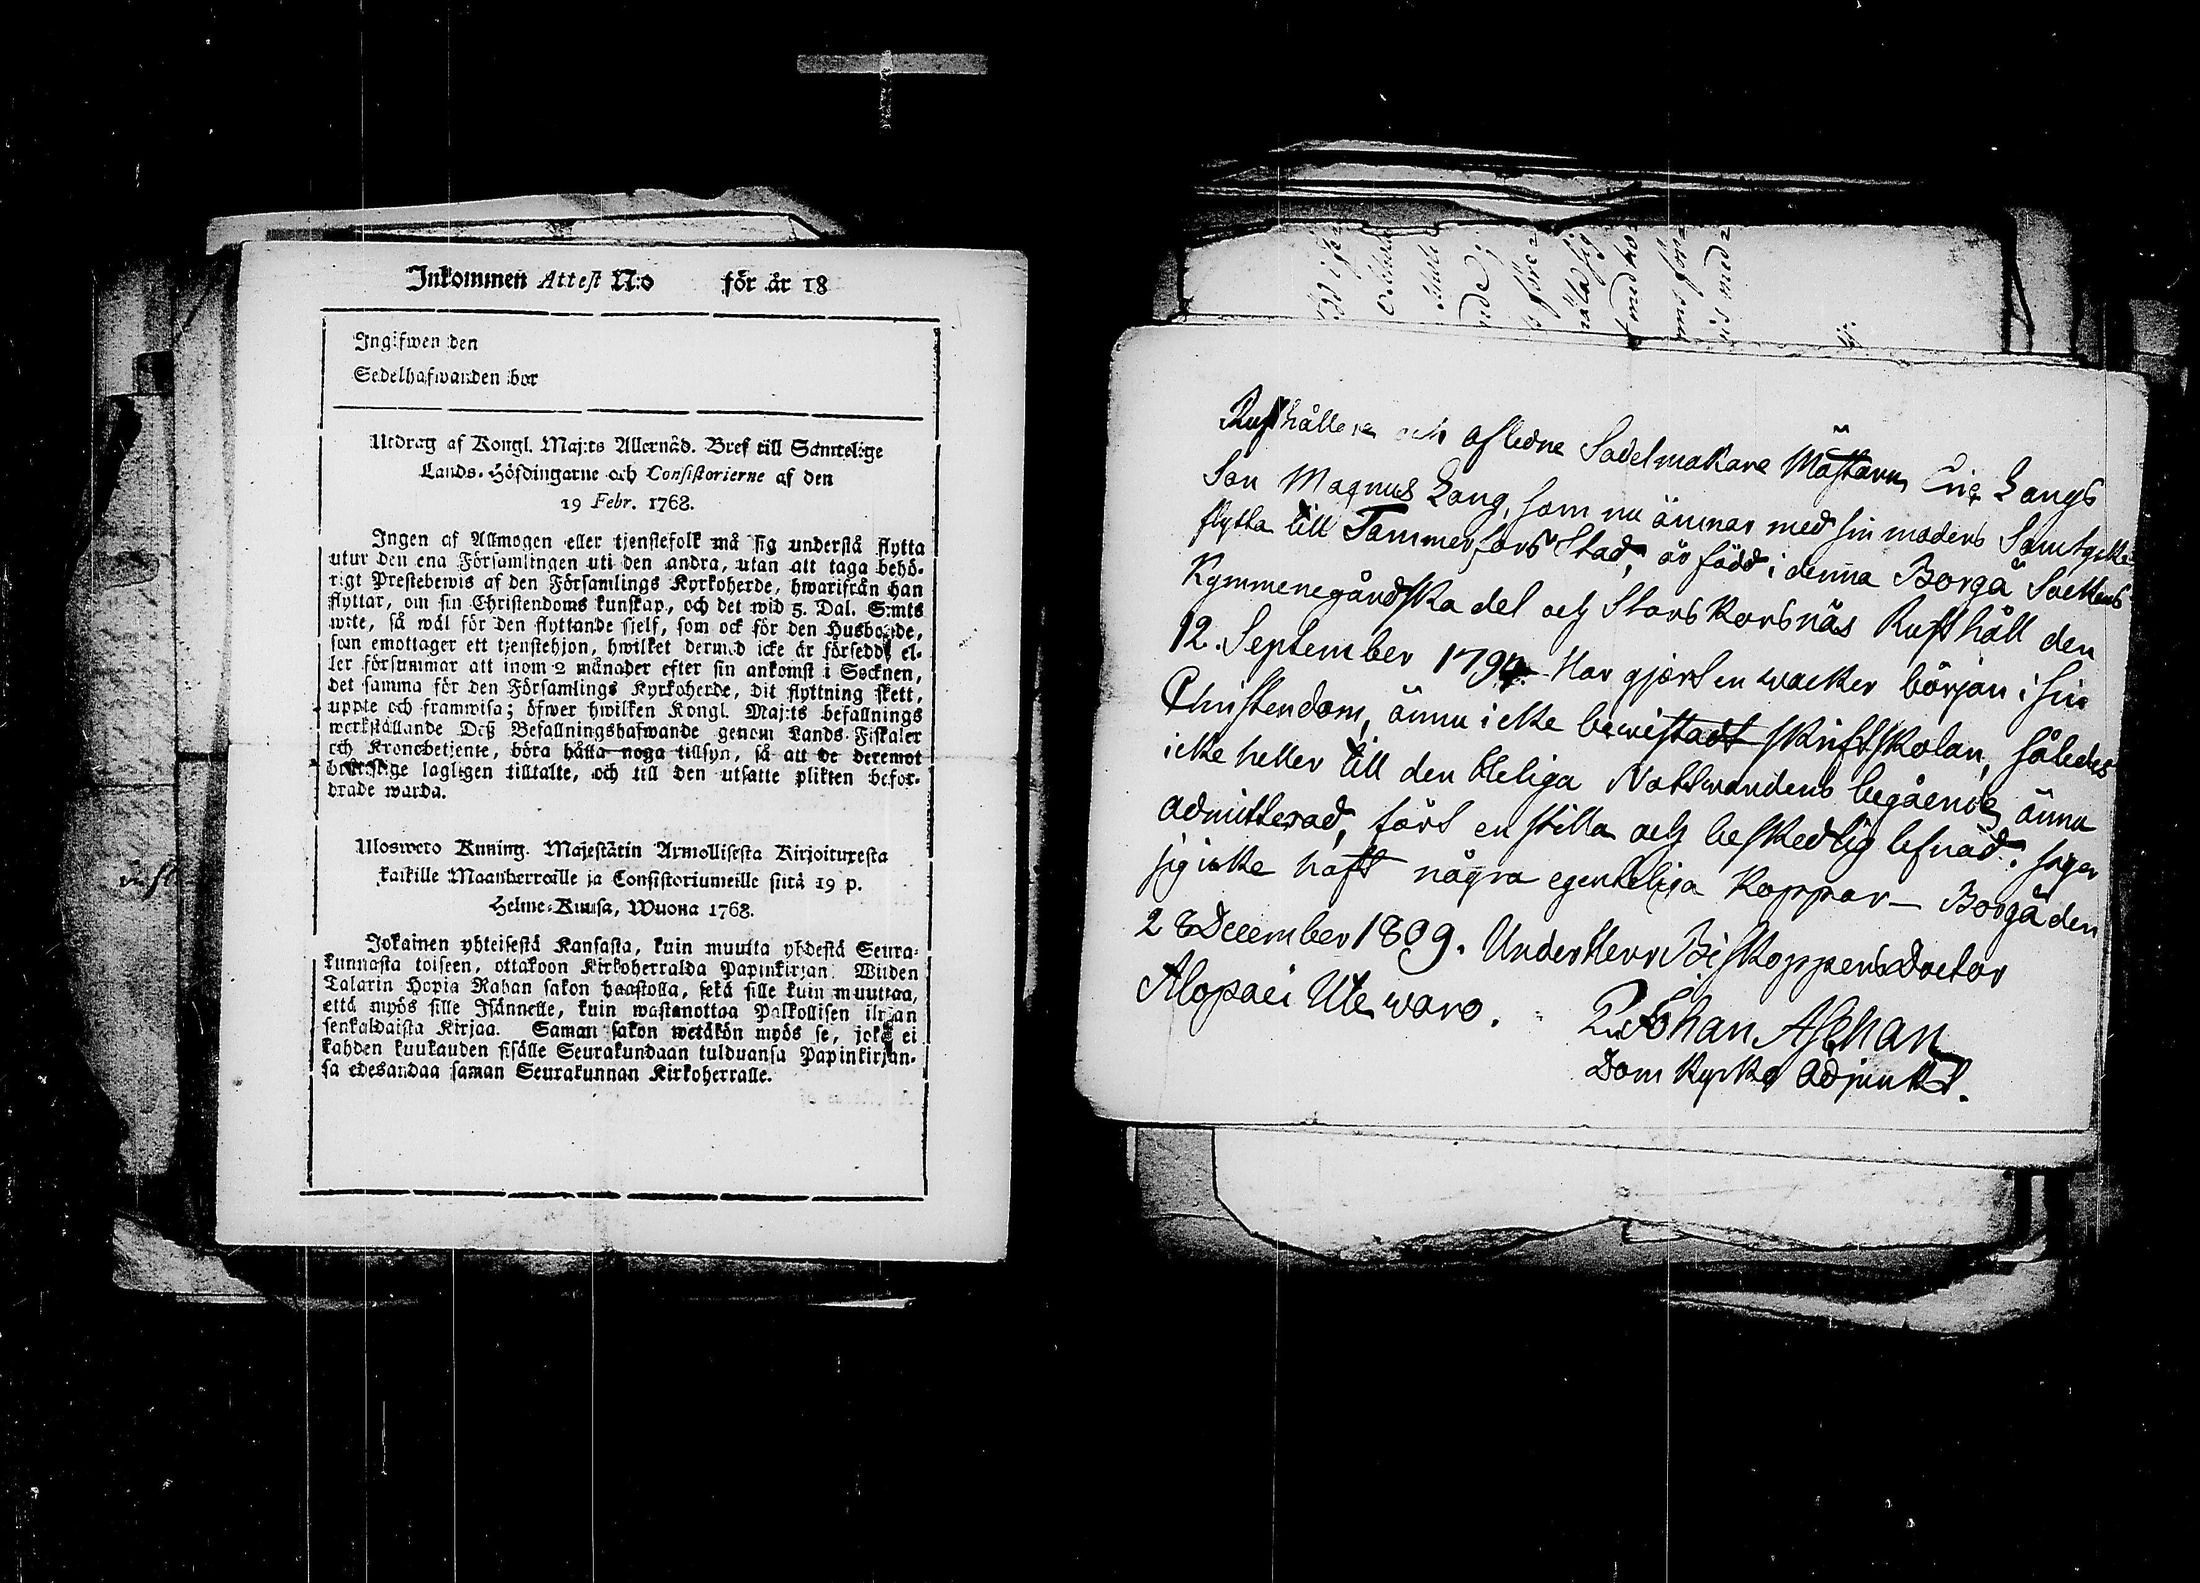 Inkommen Attest N:o för år 18
Ingifwen den
Sedelhafwanden bor
Utdrag af Kongl. Maj:ts Allernåd. Bref till Samtelige
Lands-Höfdingarne och Consistorierne af den
19 Febr. 1768.
Ingen af Allmogen eller tjenstefolk må sig understå flytta
utur den ena Församlingen uti den andra, utan att taga behö-
rigt Prestebewis af den Församlings Kyrkoherde, hwarifrån han
flyttar, om sin Christendoms kunskap, och det wid 5. Dal. S:mts
wite, så wäl för den flyttande sjelf, som ock för den Husbonde,
som emottager ett tjenstehjon, hwilket dermed icke är försedd, el-
ler försummar att inom 2 månader efter sin ankomst i Socknen,
det samma för den Församlings Kyrkoherde, dit flyttning skett,
uppte och framwisa; öfwer hwilken Kongl. Maj:ts befallnings
werkställande Deß Befallningshafwande genom Lands-Fiskaler
och Kronobetjente, böra hålla noga tillsyn, så att de deremot
brottslige lagligen tilltalte, och till den utsatte plikten befor-
drade warda.
Ulosweto Kuning. Majestätin Armollisesta Kirjoituxesta
kaikille Maanherroille ja Consistoriumeille siitä 19 p.
Helme-Kuusa, Wuona 1768.
Jokainen yhteisestä Kansasta, kuin muutta yhdestä Seura-
kunnasta toiseen, ottakoon Kirkoherralda Papinkirjan Wiiden
Talarin Hopia Rahan sakon haastolla, sekä sille kuin muuttaa,
että myös sille Isännelle, kuin wastanottaa Palkollisen ilman
senkaldaista Kirjaa. Saman sakon wetäkön myös se, joka ei
kahden kuukauden sisälle Seurakundaan tulduansa Papinkirjan-
sa edesandaa saman Seurakunnan Kirkoherralle.
Rusthållare och afledne Sadelmakare Mästarn Eric Langs
Son Magnus Lang, som nu ämnar med sin moders Samtycke
flytta till Tammerfors Stad, är född i denna Borgå Sockens
Kymmenegårdska del och Stors Korsnäs Rusthåll den
12. September 1794. Har gjort en wacker början i sin
Christendom, ännu icke bewistadt skriftskolan, således
icke heller till den Heliga Nattwardens begående ännu
admitterad, fört en stilla och beskedlig lefnad. Säger
sig icke haft några egentliga Koppor – Borgå den
28 December 1809. Under Herr Biskoppens Doctor
Alopæi Utewaro.
Johan Aschan
Dom Kyrko Adjunkt.